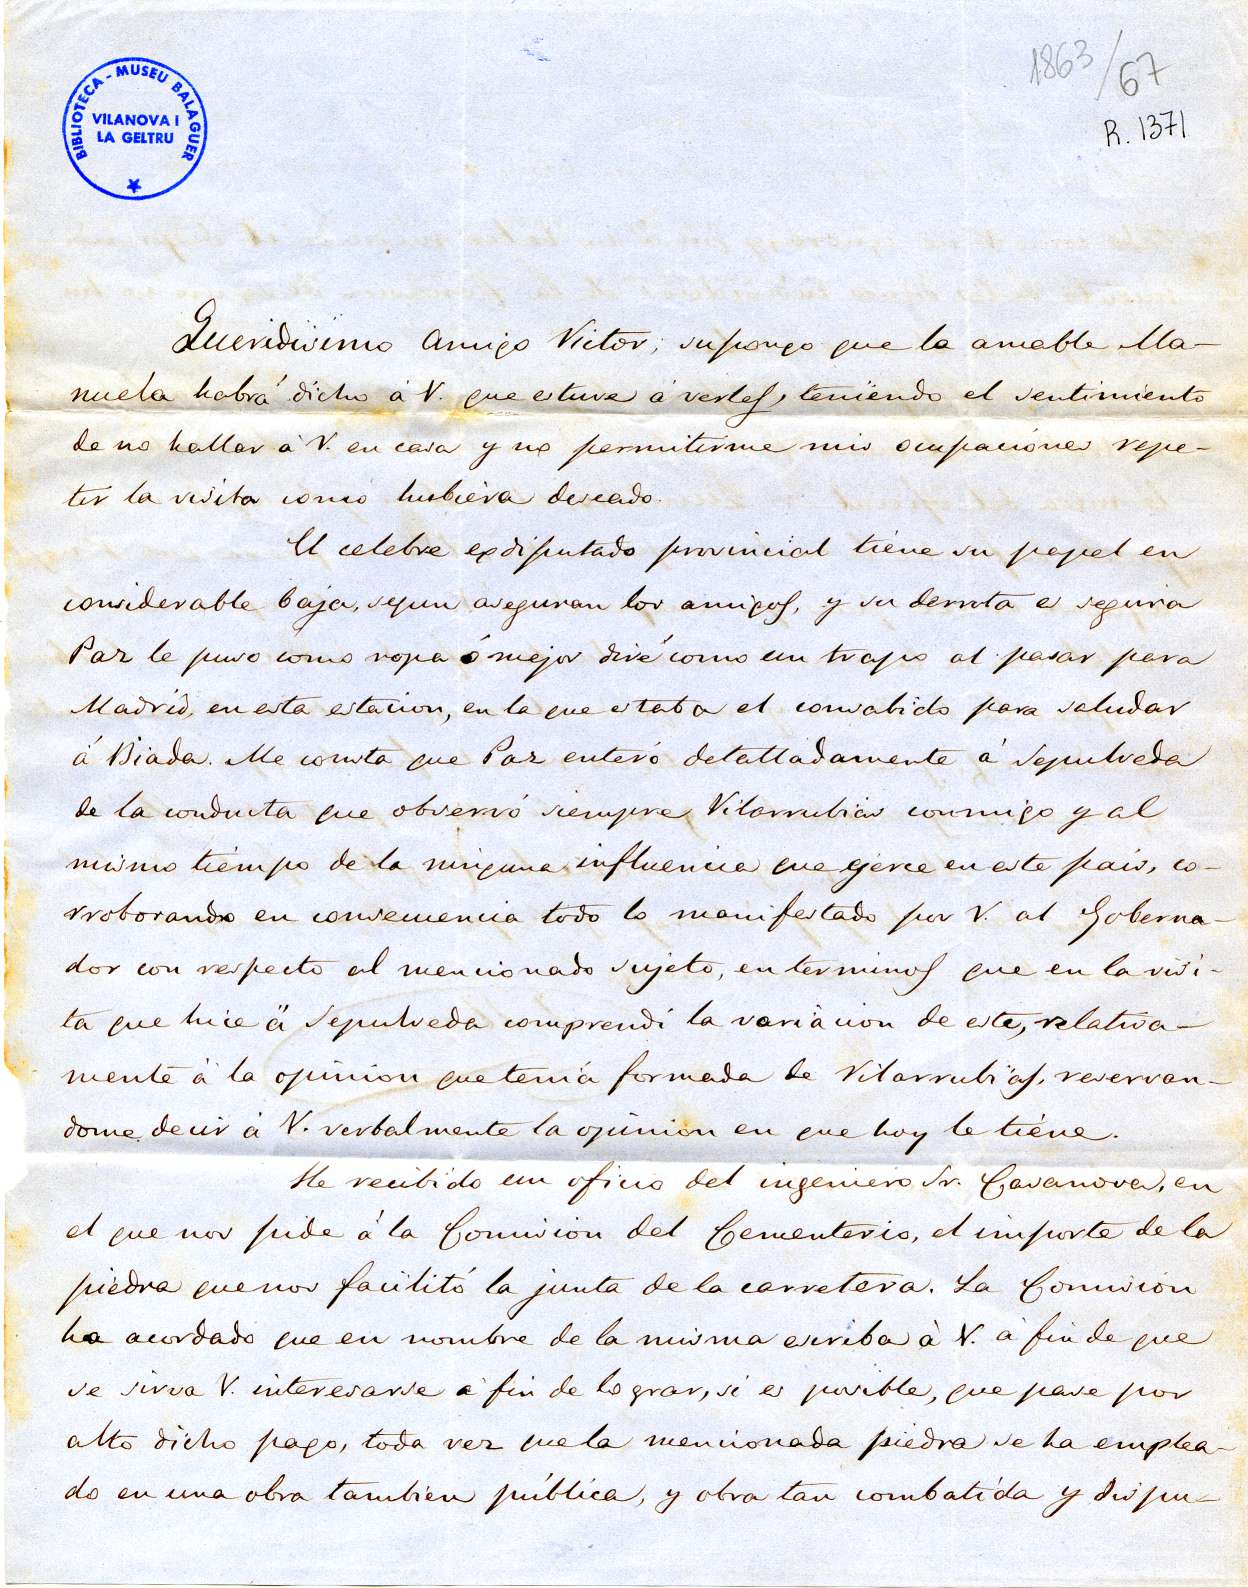 1863/67
R. 1371
BIBLIOTECA - MUSEU BALAGUER
VILANOVA I
LA GELTRU
Queridisimo amigo Victor; supongo que la amable Ma-
nuela habrá dicho á V. que estuve á verles, teniendo el sentimiento
de no hallar á V. en casa y no permitirme mis ocupaciones repe-
tir la visita como hubiera deseado.
El celebre exdiputado provincial tiene su papel en
considerable baja, segun aseguran los amigos, y su derrota es segura
Paz le puso como ropa ó mejor diré como un trapo al pasar para
Madrid, en esta estacion, en la que estaba el consabido para saludar
á Biada. Me consta que Paz enteró detalladamente á Sepulveda
de la conducta que observó siempre Vilarrubias conmigo y al
mismo tiempo de la ninguna influencia que ejerce en este pais, co-
rroborando en consecuencia todo lo manifestado por V. al Goberna-
dor con respecto al mencionado sujeto, en terminos que en la visi-
ta que hice á Sepulveda comprendí la variacion de este, relativa-
mente á la opinion que tenia formada de Vilarrubias, reservan-
dome decir á V. verbalmente la opinion en que hoy le tiene.
He recibido un oficio del ingeniero Sr. Casanova, en
el que nos pide á la Comision del Cementerio, el importe de la
piedra que nos facilitó la junta de la carretera. La Comision
ha acordado que en nombre de la misma escriba á V. á fin de que
se sirva V. interesarse á fin de lograr, si es posible, que pase por
alto dicho pago, toda vez que la mencionada piedra se ha emplea-
do en una obra tambien pública, y obra tan combatida y dispu-